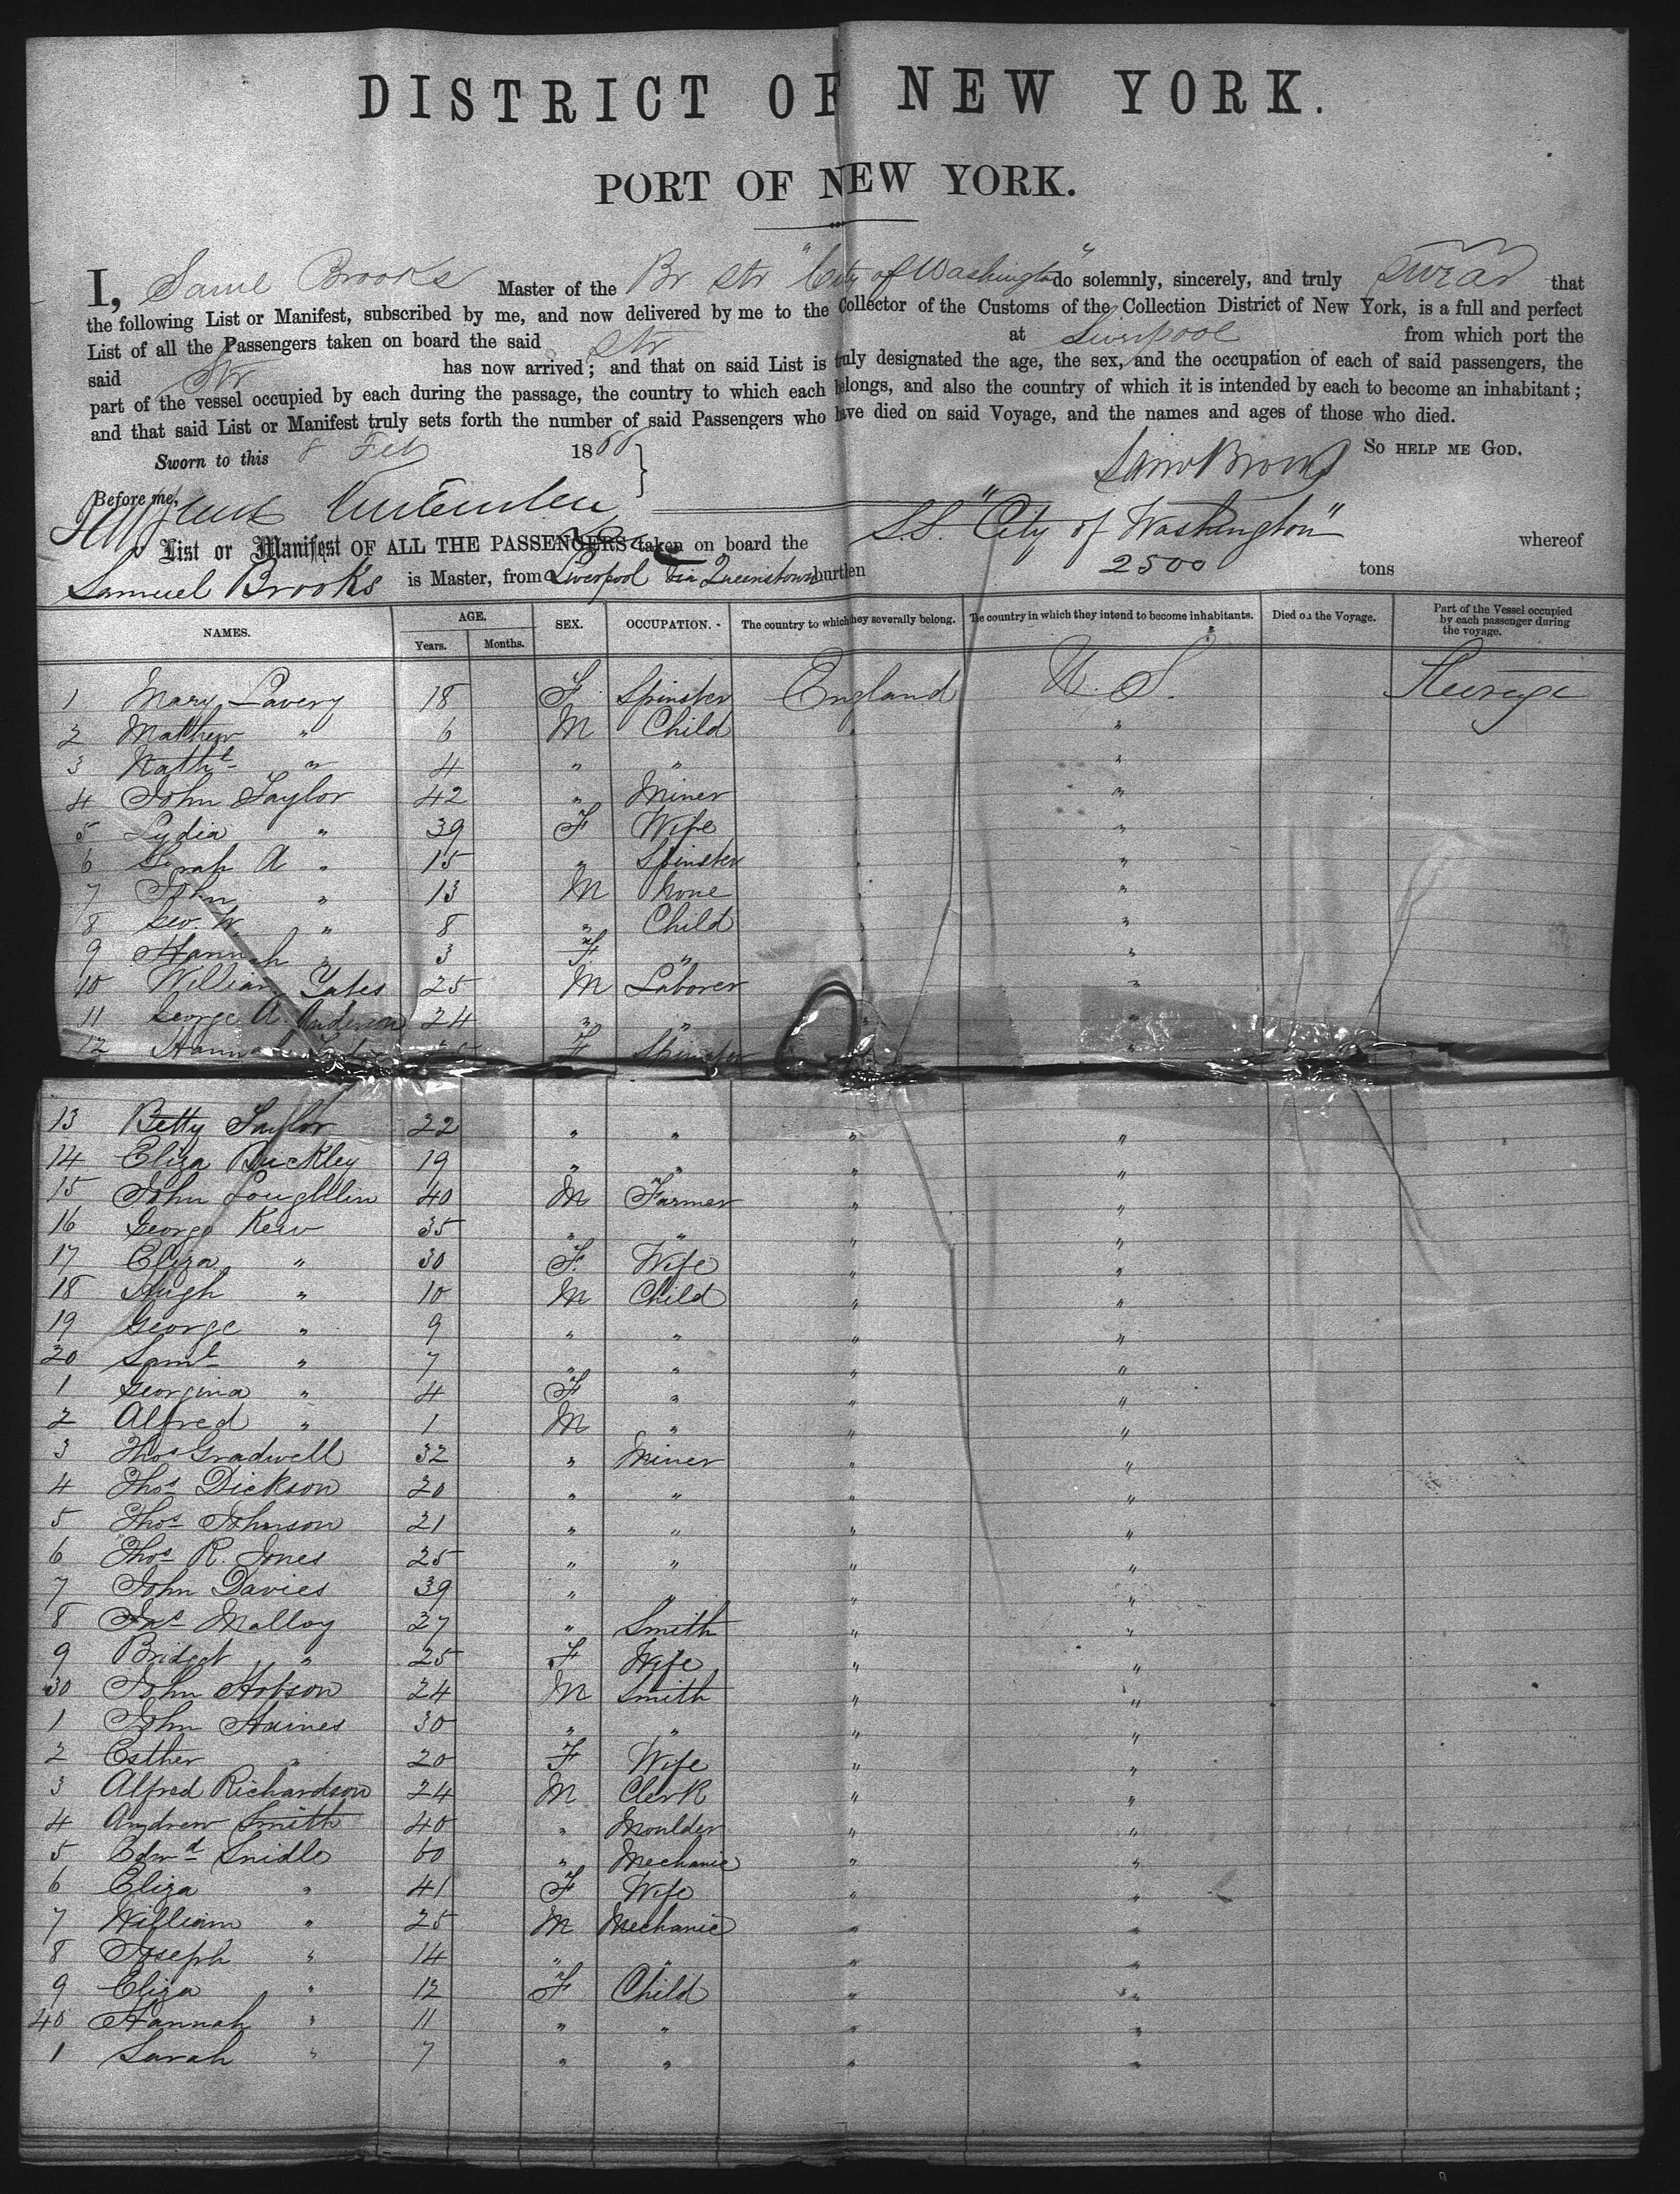 DISTRICT OF NEW YORK.
PORT OF NEW YORK.
I, Saml Brooks Master of the Br Str "City of Washington" do solemnly, sincerely, and truly swear that
the following List or Manifest, subscribed by me, and now delivered by me to the Collector of the Customs of the Collection District of New York, is a full and perfect
List of all the Passengers taken on board the said Str at Liverpool from which port the
said Str has now arrived; and that on said List is truly designated the age, the sex, and the occupation of each of said passengers, the
part of the vessel occupied by each during the passage, the country to which each belongs, and also the country of which it is intended by each to become an inhabitant;
and that said List or Manifest truly sets forth the number of said Passengers who have died on said Voyage, and the names and ages of those who died.
Sworn to this 8 Feb 1866 So help me God.
Saml Brooks
Before me,
List or Manifest OF ALL THE PASSENGERS taken on board the S.S. "City of Washington" whereof
Samuel Brooks is Master, from Liverpool via Queenstown burthen 2500 tons
NAMES. AGE. SEX. OCCUPATION. The country to which they severally belong. The country in which they intend to become inhabitants. Died on the Voyage. Part of the Vessel occupied by each passenger during the voyage.
Years. Months.
1 Mary Lavery 18 F Spinster England U. S. Steerage
2 Mathew " 6 M Child " "
3 Nathl " 4 " " " "
4 John Taylor 42 " Miner " "
5 Lydia " 39 F Wife " "
6 Sarah A " 15 " Spinster " "
7 John " 13 M None " "
8 Geo. W. " 8 " Child " "
9 Hannah " 3 F " " "
10 William Yates 25 M Laborer " "
11 George A. Anderson 24 " " " "
12 Hannah F Spinster "
13 Betty Taylor 22 " " " "
14 Eliza Buckley 19 " " " "
15 John Loughlin 40 M Farmer " "
16 George Kew 35 " " " "
17 Eliza " 30 F Wife " "
18 Hugh " 10 M Child " "
19 George " 9 " " " "
20 Saml " 7 " " " "
1 Georgina " 4 F " " "
2 Alfred " 1 M " " "
3 Thos Gradwell 32 " Miner " "
4 Thos Dickson 20 " " " "
5 Thos Johnson 21 " " " "
6 Thos R. Jones 25 " " " "
7 John Davies 39 " " " "
8 Jas Malloy 27 " Smith " "
9 Bridget " 25 F Wife " "
30 John Hobson 24 M Smith " "
1 John Haines 30 " " " "
2 Esther " 20 F Wife " "
3 Alfred Richardson 24 M Clerk " "
4 Andrew Smith 40 " Moulder " "
5 Edwd Snidle 60 " Mechanic " "
6 Eliza " 41 F Wife " "
7 William " 25 M Mechanic " "
8 Joseph " 14 " " " "
9 Eliza " 12 F Child " "
40 Hannah " 11 " " " "
1 Sarah " 7 " " " "